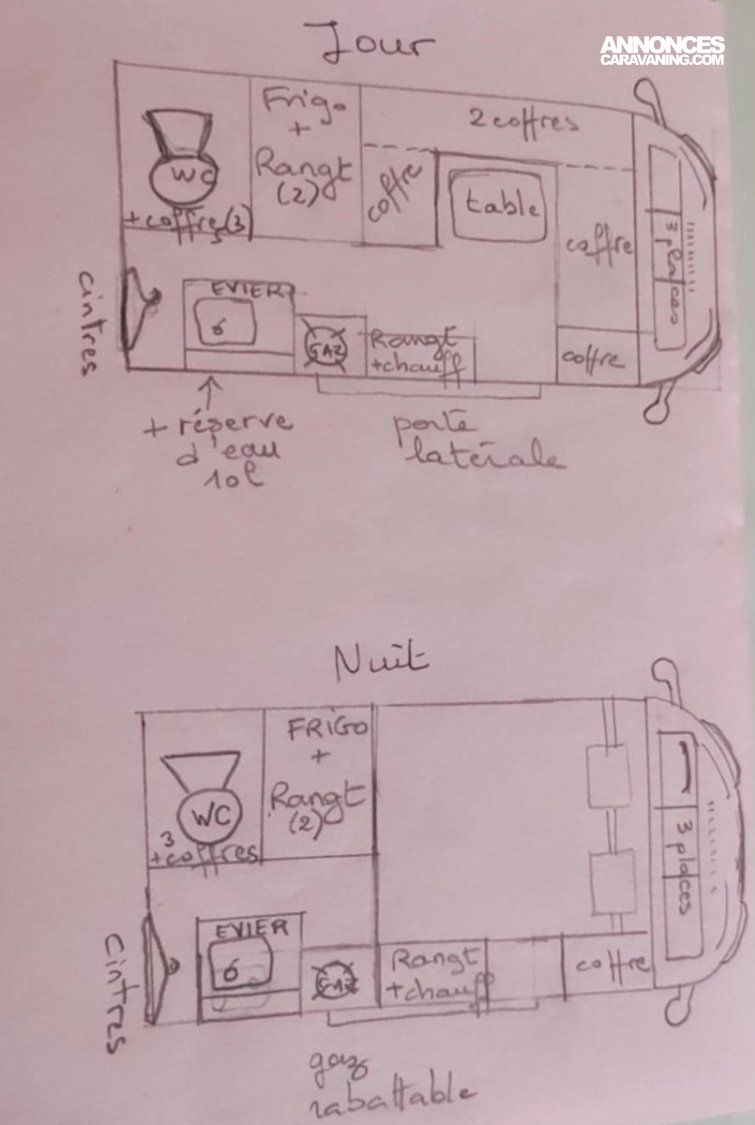 Jour
ANNONCES
CARAVANING.COM
Frigo
+
Rangt
(2)
2 coffres
WC
+coffres(3)
coffre
table
coffre
3 places
cintres
EVIER
GAZ
Rangt
+chauff
coffre
+ réserve
d'eau
10l
porte
latérale
Nuit
FRIGO
+
Rangt
(2)
WC
3
+coffres
3 places
Cintres
EVIER
GAZ
Rangt
+chauff
coffre
gaz
rabattable